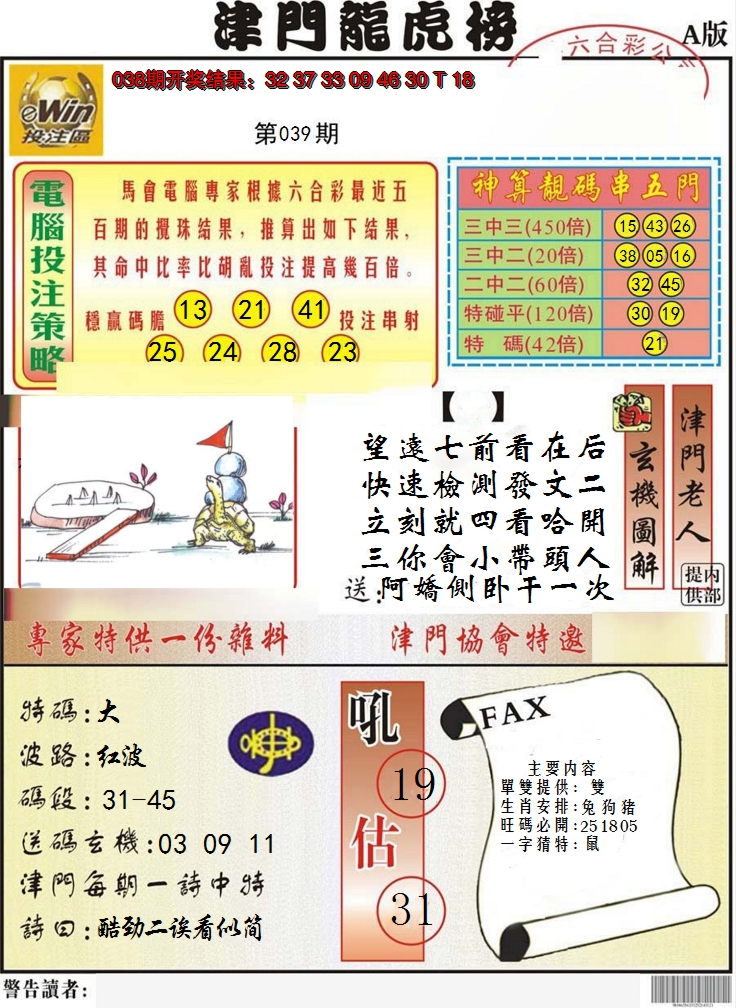 津門龍虎榜
六合彩公
A版
038期开奖结果：32 37 33 09 46 30 T 18
eWin
投注區
第039期
電腦投注策略
馬會電腦專家根據六合彩最近五
百期的攪珠结果，推算出如下结果，
其命中比率比胡亂投注提高幾百倍。
穩贏碼膽 13 21 41 投注串射
25 24 28 23
神算靚碼串五門
三中三(450倍) 15 43 26
三中二(20倍) 38 05 16
二中二(60倍) 32 45
特碰平(120倍) 30 19
特 碼(42倍) 21
【 】
望遠七前看在后
快速檢測發文二
立刻就四看哈開
三你會小帶頭人
送:阿嬌側卧干一次
玄機圖解
津門老人
内部提供
專家特供一份雜料
津門協會特邀
特碼:大
波路:红波
碼段:31-45
送碼玄機:03 09 11
津門每期一詩中特
詩曰:酷劲二诶看似简
吼
19
估
31
FAX
主要内容
單雙提供：雙
生肖安排:兔狗豬
旺碼必開:251805
一字猜特:鼠
警告讀者: